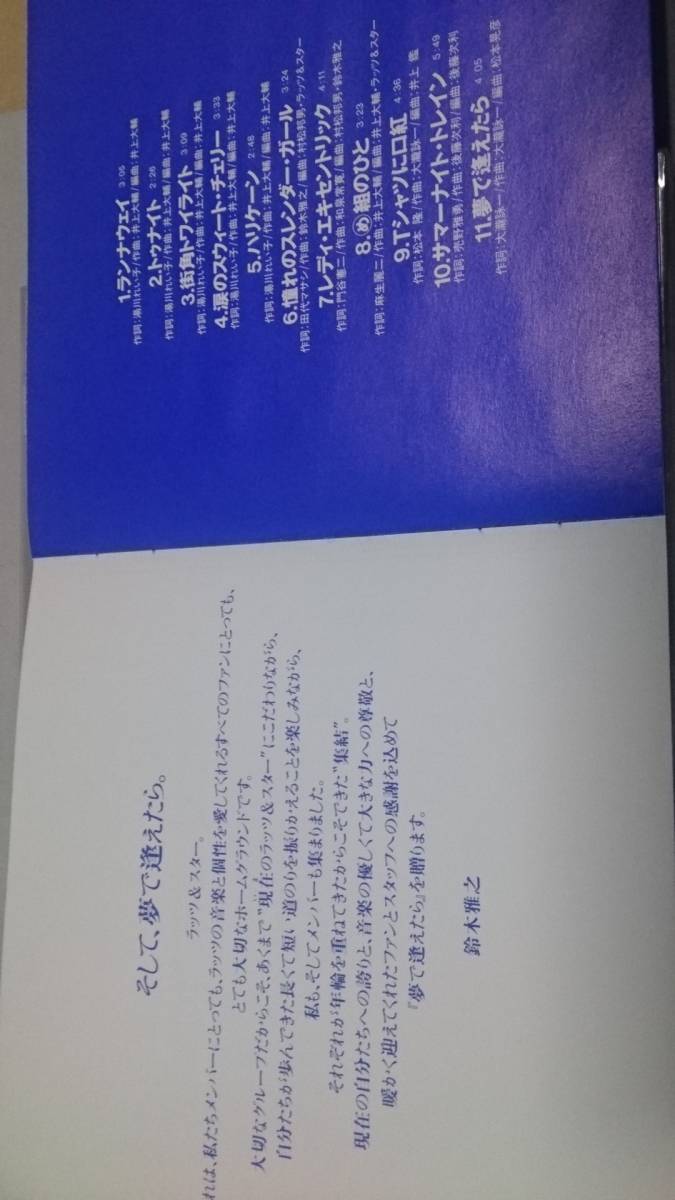 1.ランナウェイ 3:05
作詞:湯川れい子/作曲:井上大輔/編曲:井上大輔
2.トゥナイト 2:26
作詞:湯川れい子/作曲:井上大輔/編曲:井上大輔
3.街角トワイライト 3:09
作詞:湯川れい子/作曲:井上大輔/編曲:井上大輔
4.涙のスウィート・チェリー 3:33
作詞:湯川れい子/作曲:井上大輔/編曲:井上大輔
5.ハリケーン 2:48
作詞:湯川れい子/作曲:井上大輔/編曲:井上大輔
6.憧れのスレンダー・ガール 3:24
作詞:田代マサシ/作曲:鈴木雅之/編曲:村松邦男・ラッツ&スター
7.レディ・エキセントリック 4:11
作詞:門谷憲二/作曲:和泉常寛/編曲:村松邦男・鈴木雅之
8.㋱組のひと 3:23
作詞:麻生麗二/作曲:井上大輔/編曲:井上大輔・ラッツ&スター
9.Tシャツに口紅 4:36
作詞:松本 隆/作曲:大瀧詠一/編曲:井上 鑑
10.サマーナイト・トレイン 5:49
作詞:売野雅勇/作曲:後藤次利/編曲:後藤次利
11.夢で逢えたら 4:05
作詞:大瀧詠一/作曲:大瀧詠一/編曲:松本晃彦
そして、夢で逢えたら。
ラッツ&スター。
れは、私たちメンバーにとっても、ラッツの音楽と個性を愛してくれるすべてのファンにとっても、
とても大切なホームグラウンドです。
大切なグループだからこそ、あくまで“現在のラッツ&スター”にこだわりながら、
自分たちが歩んできた長くて短い道のりを振りかえることを楽しみながら、
私も、そしてメンバーも集まりました。
それぞれが年輪を重ねてきたからこそできた“集結”。
現在の自分たちへの誇りと、音楽の優しくて大きな力への尊敬と、
暖かく迎えてくれたファンとスタッフへの感謝を込めて
『夢で逢えたら』を贈ります。
鈴木雅之